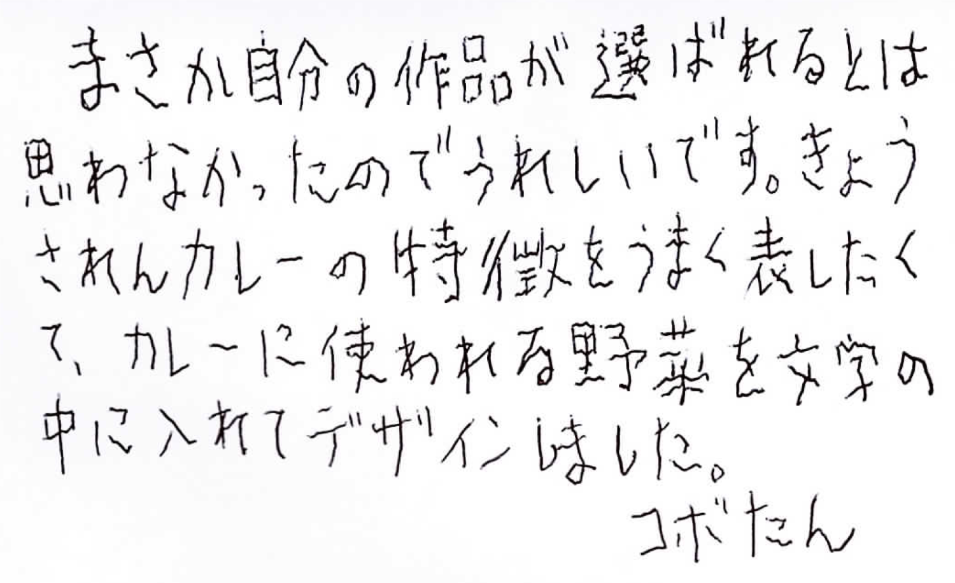 まさか自分の作品が選ばれるとは
思わなかったのでうれしいです。きょう
されんカレーの特徴をうまく表したく
て、カレーに使われる野菜を文学の
中に入れてデザインしました。
コボたん